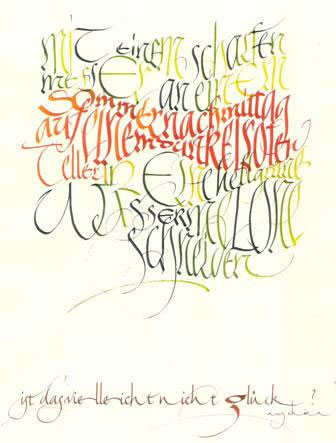 miT einem scharfen
messer an einem
Sommernachmittag
auf einem dunkelroten
Teller in Eine hellgrüne
WASSERMELONE
schneiden
ist das vielleicht nicht glück?